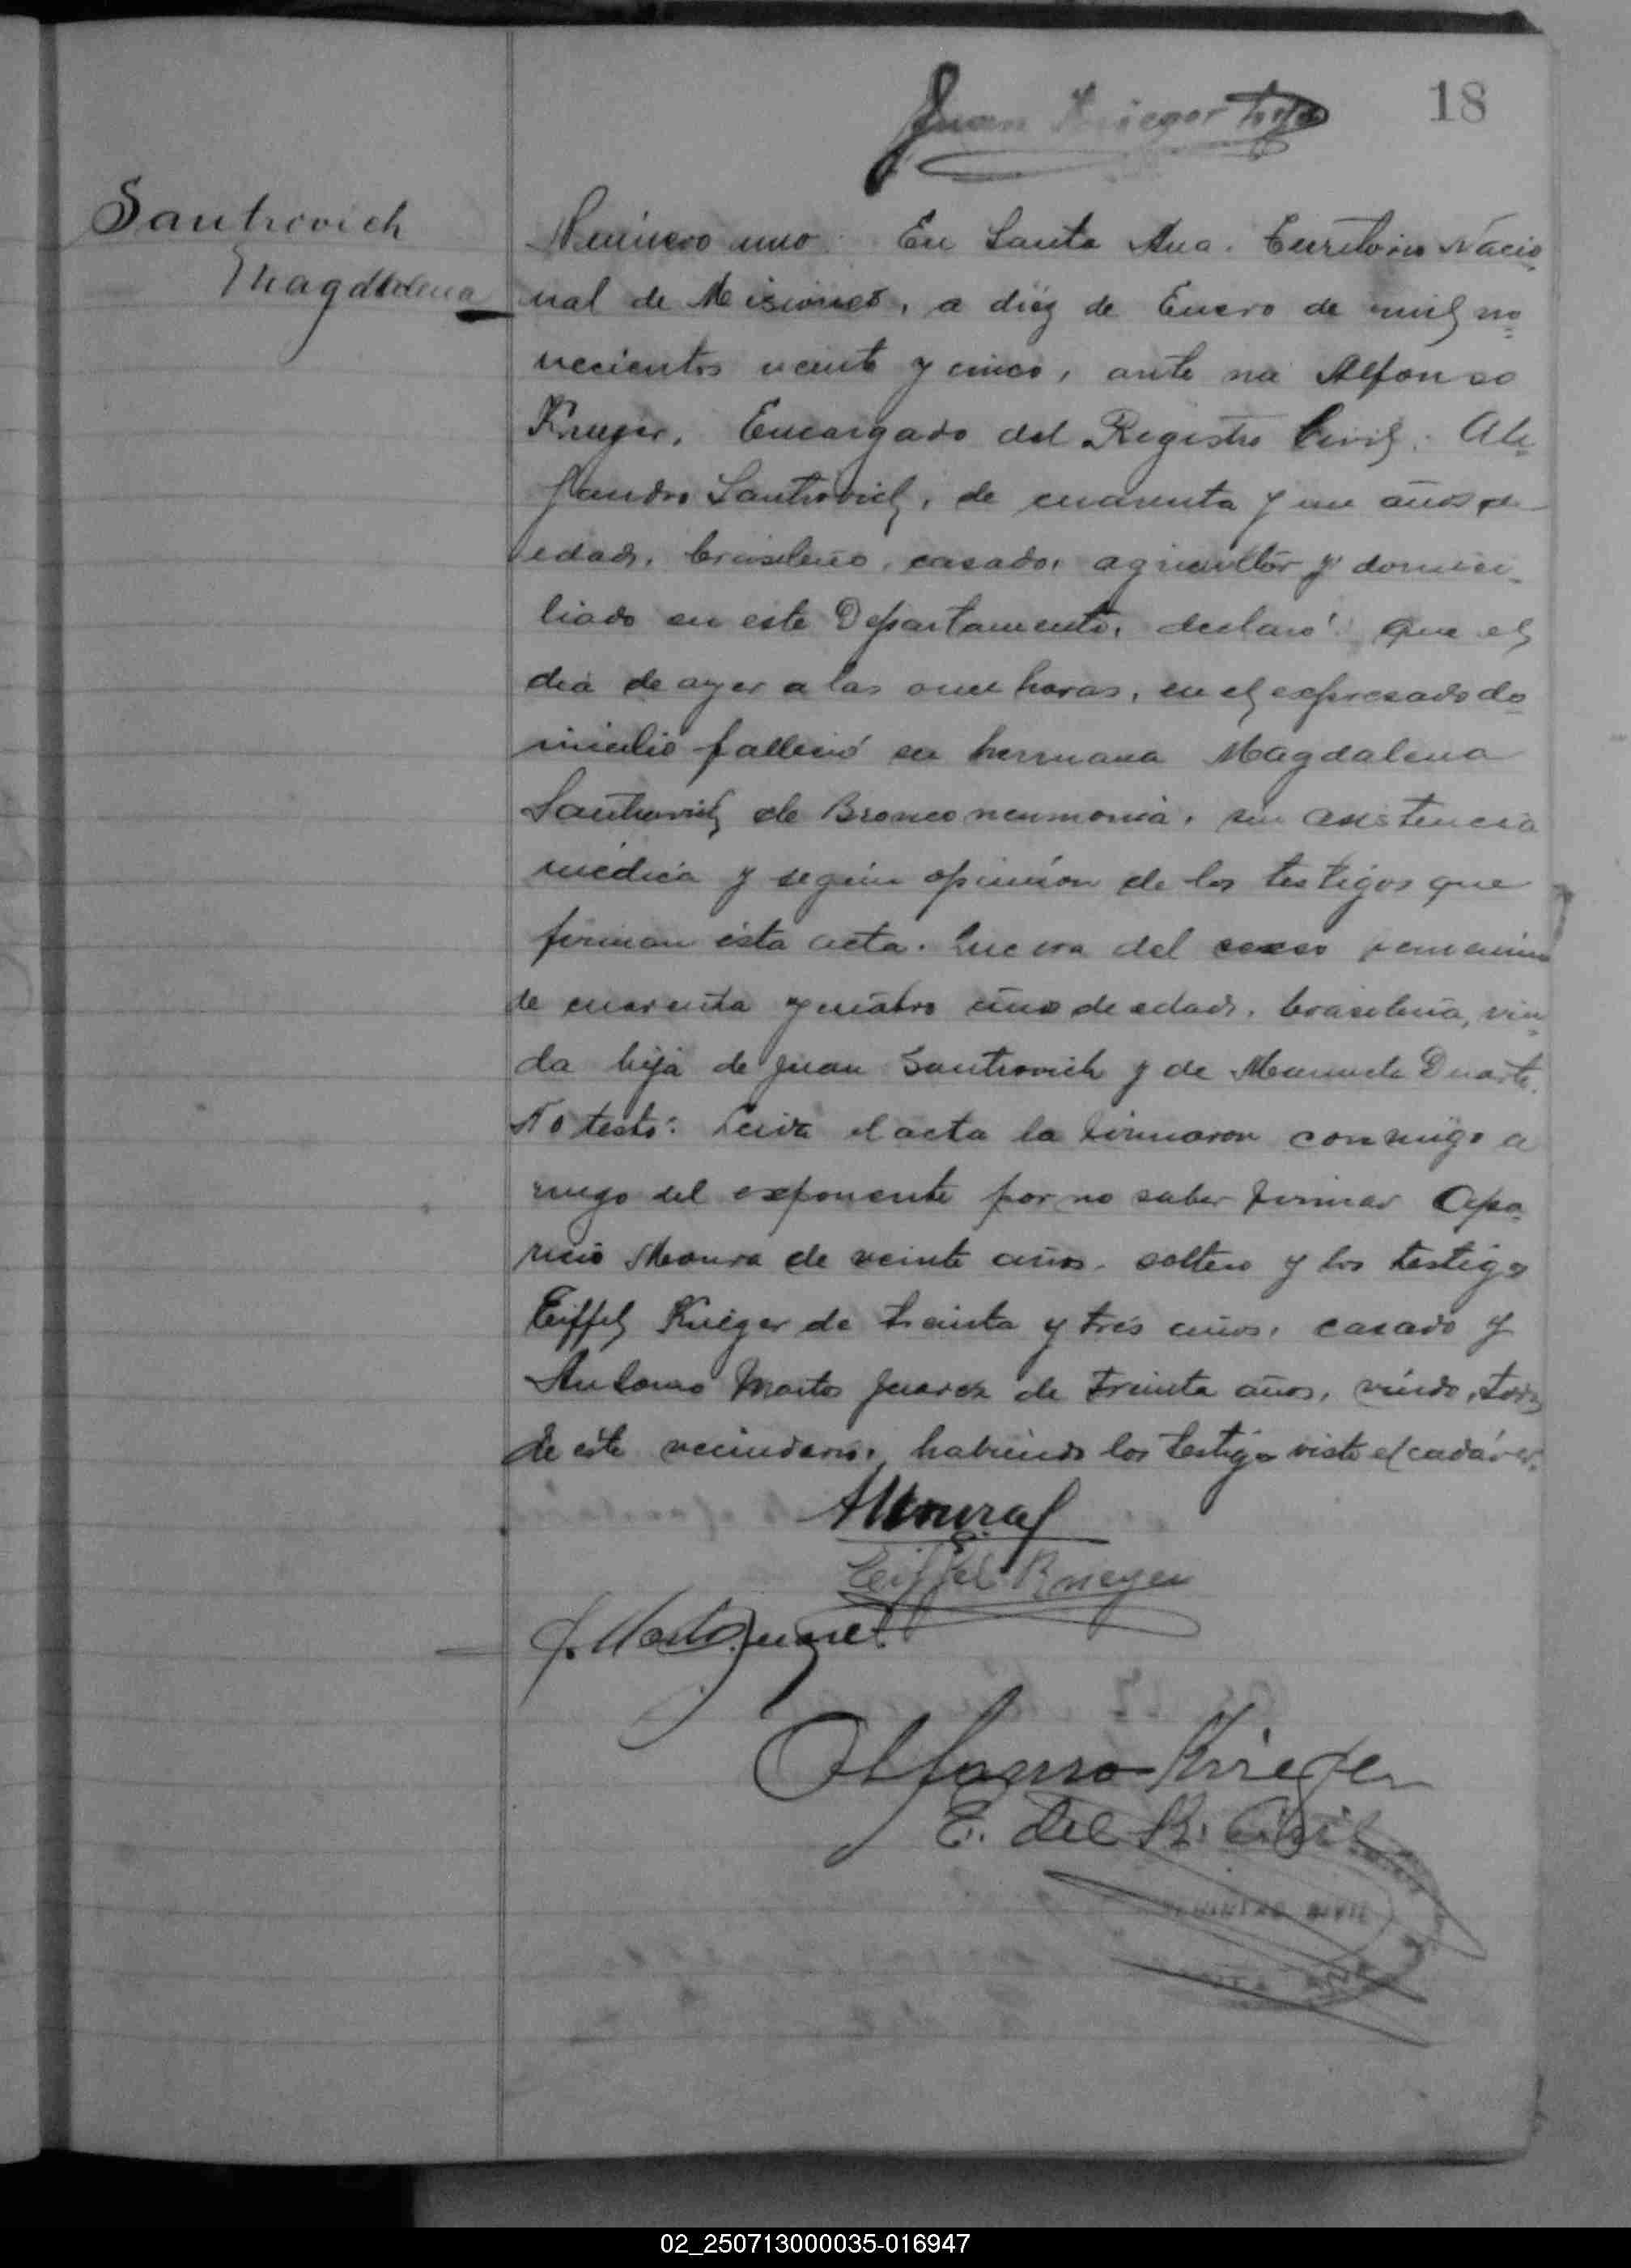 18
Juan Krieger
Santrovich
Magdalena
Número uno. En Santa Ana. Territorio Nacio
nal de Misiones, a diez de Enero de mil no
vecientos veinte y cinco, ante mi Alfonso
Krieger, Encargado del Registro Civil: Ale
jandro Santrovich, de cuarenta y un años de
edad, brasileño, casado, agricultor y domici
liado en este Departamento, declaró: Que el
dia de ayer a las once horas, en el expresado do
micilio falleció su hermana Magdalena
Santrovich de Bronco neumonia, sin asistencia
médica y según opinión de los testigos que
firman ésta acta. Que era del sexo femenino
de cuarenta y cuatro años de edad, brasileña, viu
da hija de Juan Santrovich y de Manuela Duarte.
No testó: Leida el acta la firmaron conmigo a
ruego del exponente por no saber firmar Apa
ricio Moura de veinte años, soltero y los testigos
Eiffel Krieger de treinta y tres años, casado y
Antonio Martos Juarez de treinta años, viudo, todos
de éste vecindario, habiendo los testigos visto el cadáver.
AMoura
Eiffel Krieger
A. Martos Juarez
Alfonso Krieger
E. del R. Civil
REGISTRO CIVIL
SANTA ANA
02_250713000035-016947